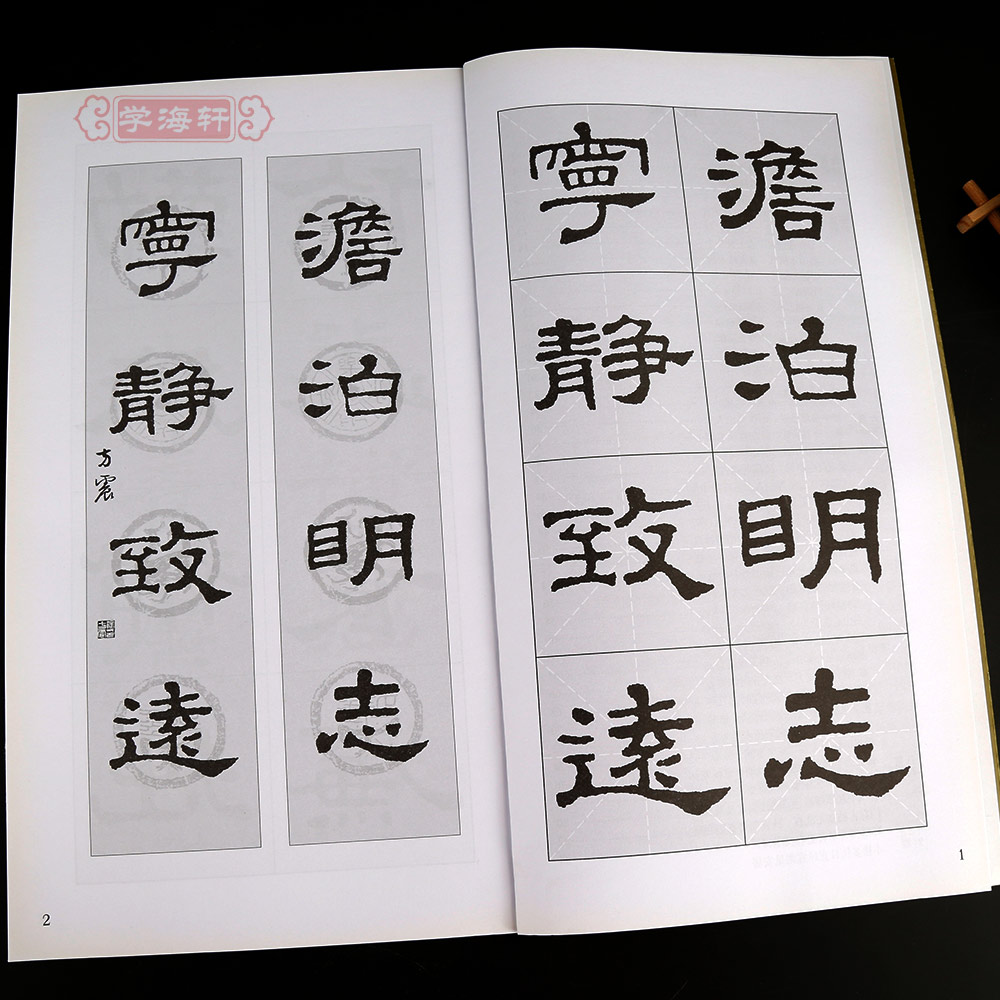 学海轩
澹泊明志
寧靜致遠
方震
2
澹泊明志
寧靜致遠
1